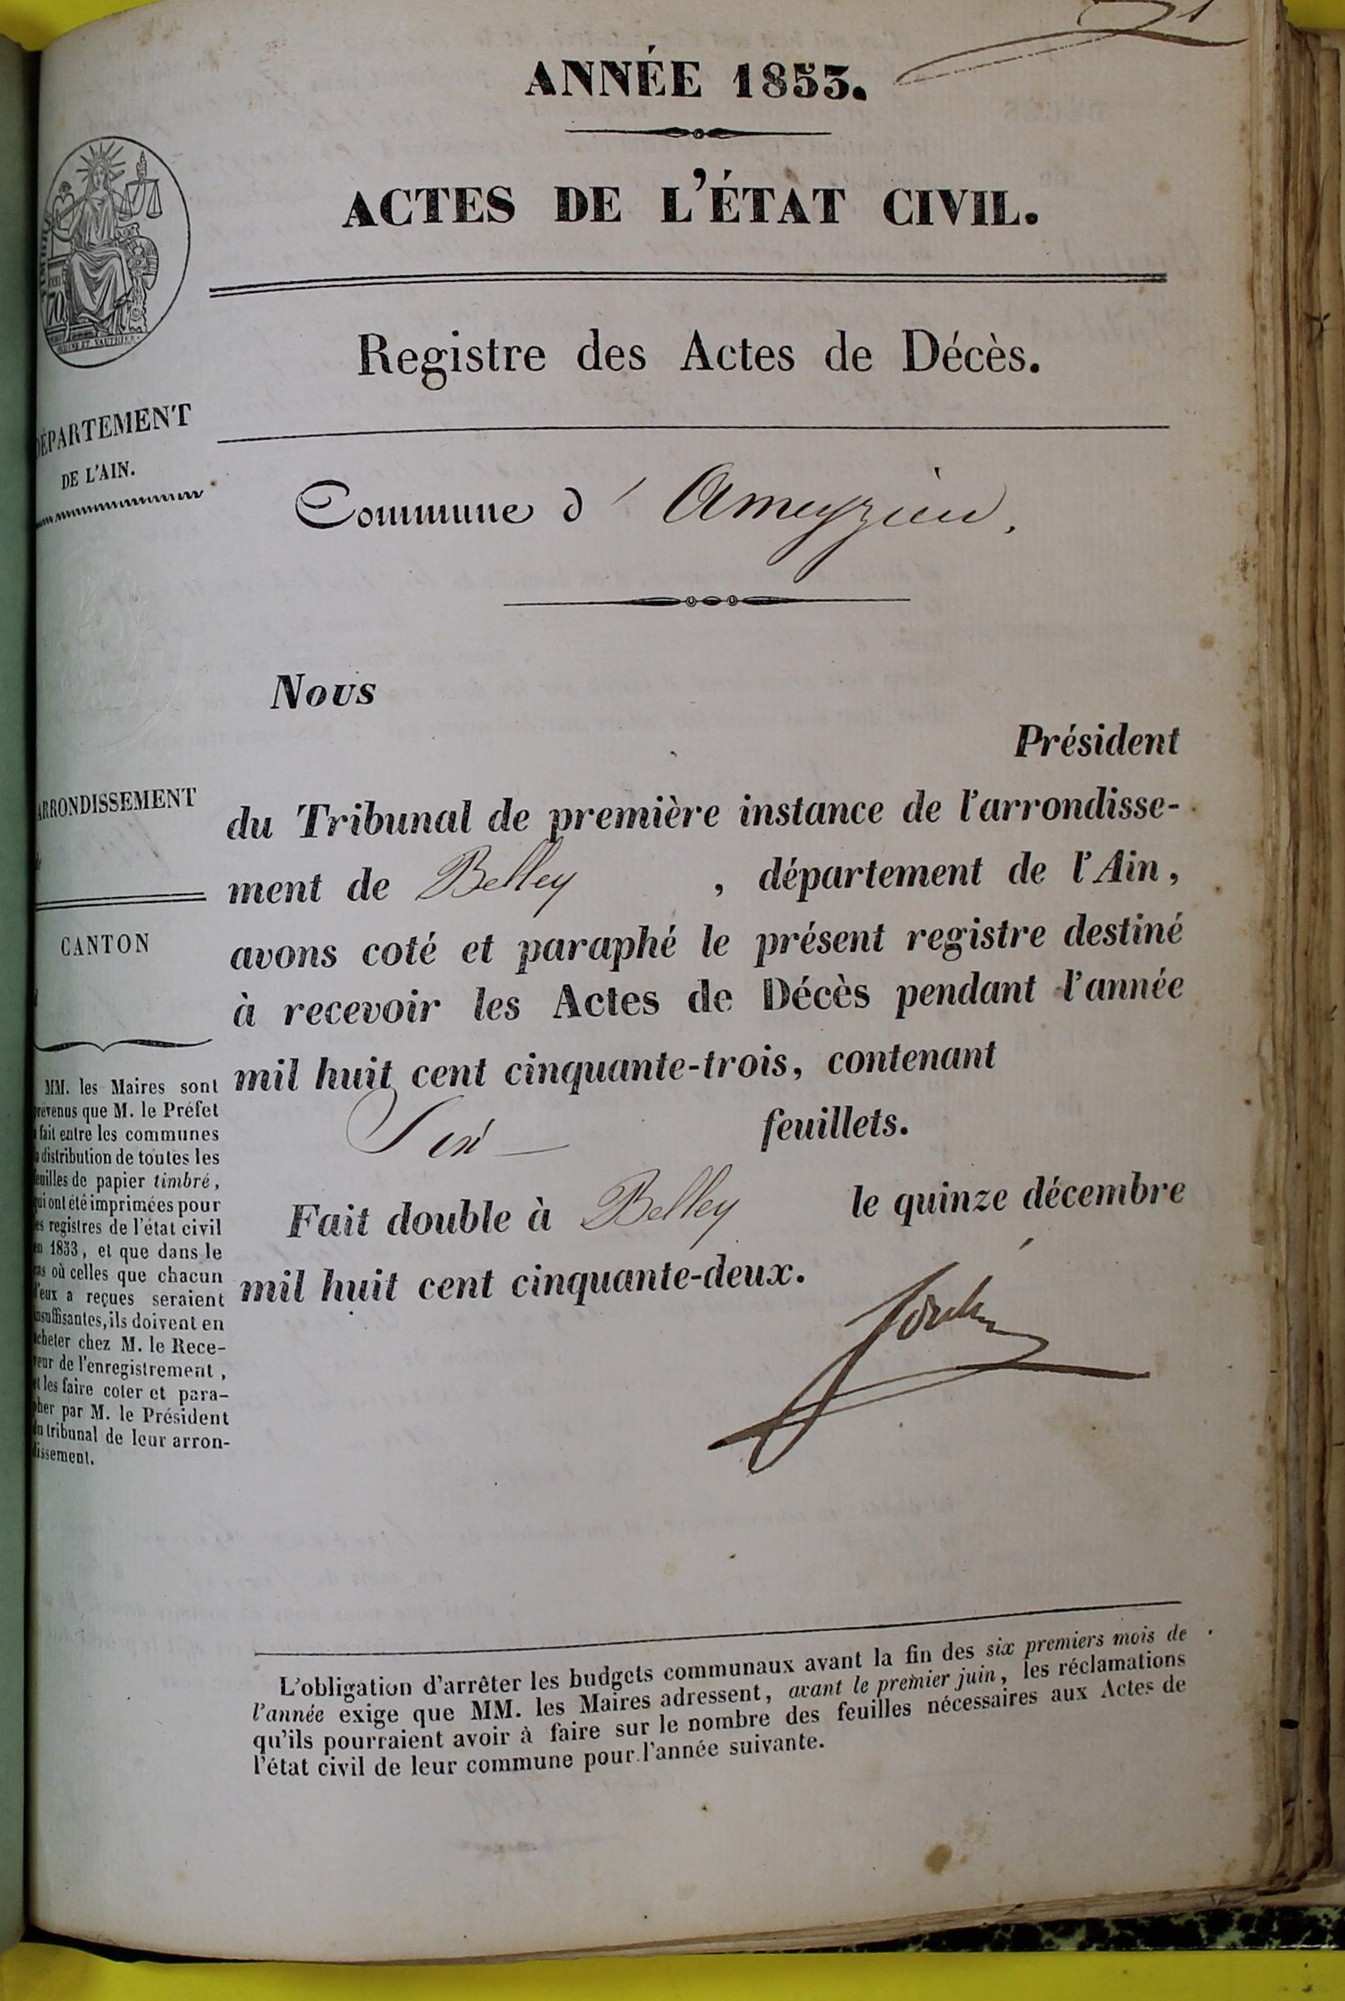 1
ANNÉE 1853.
ACTES DE L'ÉTAT CIVIL.
Registre des Actes de Décès.
DÉPARTEMENT
DE L'AIN.
Commune d'Ameyzieu.
Nous
Président
du Tribunal de première instance de l'arrondisse-
ment de Belley, département de l'Ain,
avons coté et paraphé le présent registre destiné
à recevoir les Actes de Décès pendant l'année
mil huit cent cinquante-trois, contenant
Six feuillets.
Fait double à Belley le quinze décembre
mil huit cent cinquante-deux.
ARRONDISSEMENT
CANTON
MM. les Maires sont
prévenus que M. le Préfet
a fait entre les communes
la distribution de toutes les
feuilles de papier timbré,
qui ont été imprimées pour
les registres de l'état civil
en 1853, et que dans le
cas où celles que chacun
d'eux a reçues seraient
insuffisantes, ils doivent en
acheter chez M. le Rece-
veur de l'enregistrement,
et les faire coter et para-
pher par M. le Président
du tribunal de leur arron-
dissement.
L'obligation d'arrêter les budgets communaux avant la fin des six premiers mois de
l'année exige que MM. les Maires adressent, avant le premier juin, les réclamations
qu'ils pourraient avoir à faire sur le nombre des feuilles nécessaires aux Actes de
l'état civil de leur commune pour l'année suivante.